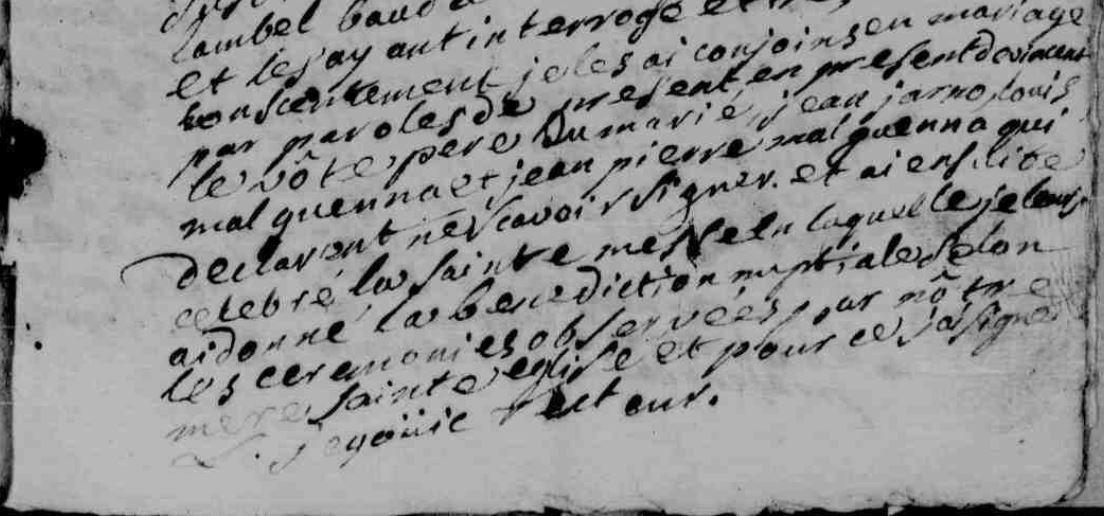 cambel baud
et les ayant interrogé et
consentement je les ai conjoins en mariage
par paroles de present en present de vincent
le vôte, pere du marié, jean jarno, louis
malquenna et jean pierre malquenna qui
declarent ne scavoir signer. et ai ensuite
celebré la sainte messe en laquelle je leurs
ai donné la benediction nuptiale selon
les ceremonies observées par nôtre
mere sainte eglise et pour ce j'ai signé
recteur.